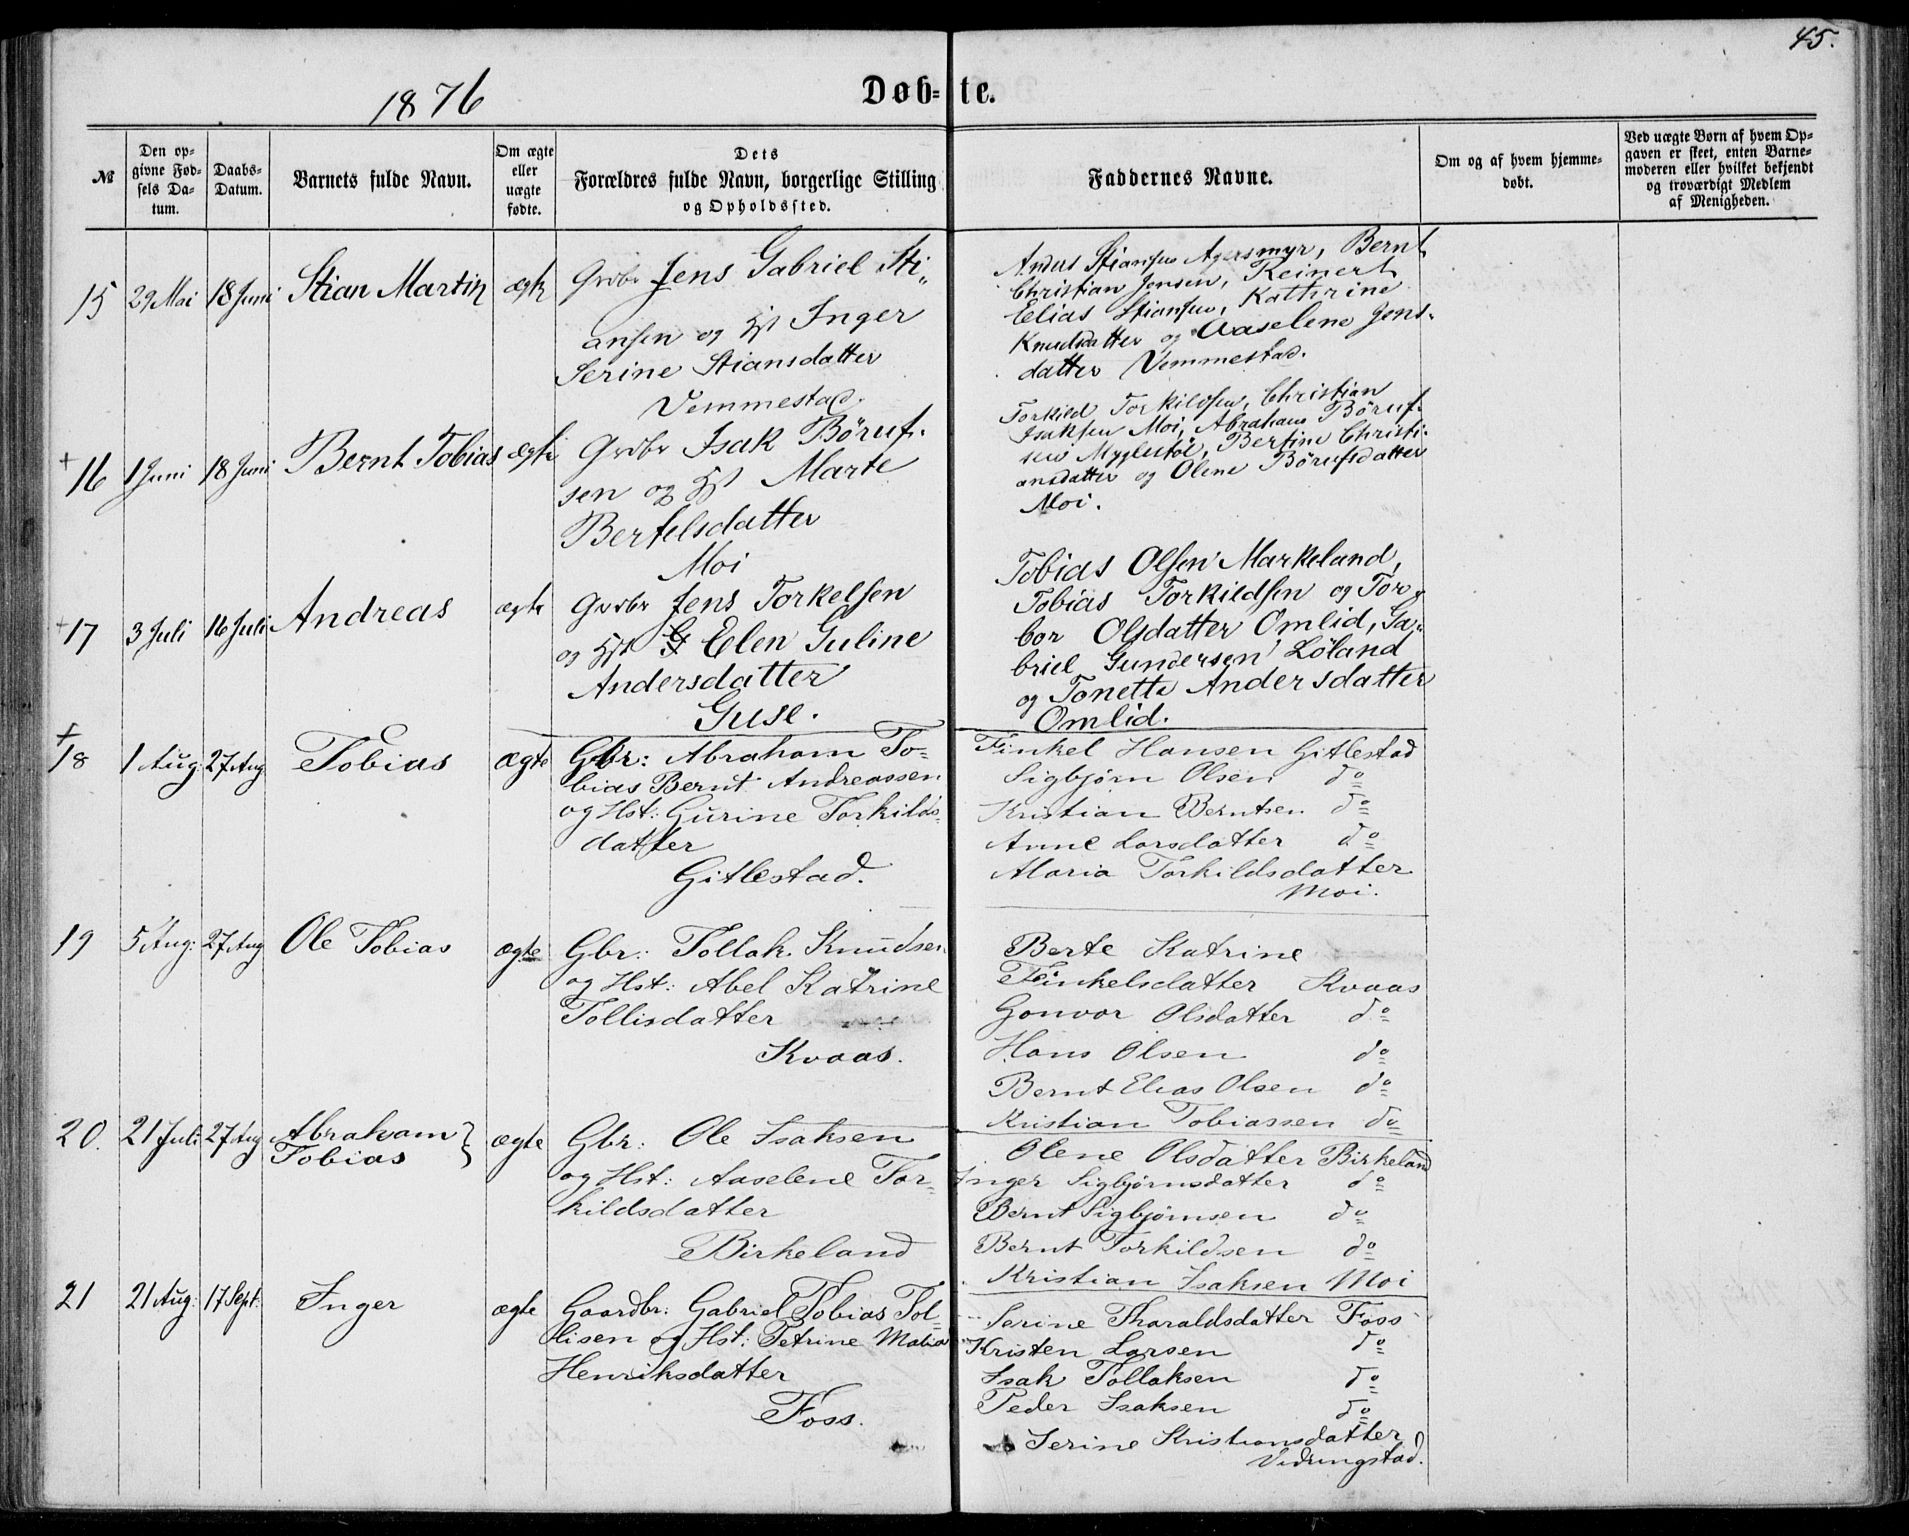 45.
1876
Døb-te.
№
Den op-
givne Fød-
sels Da-
tum.
Daabs-
Datum.
Barnets fulde Navn.
Om ægte
eller
uægte
fødte.
Dets
Forældres fulde Navn, borgerlige Stilling
og Opholdssted.
Faddernes Navne.
Om og af hvem hjemme-
døbt.
Ved uægte Børn af hvem Op-
gaven er skeet, enten Barne-
moderen eller hvilket bekjendt
og troværdigt Medlem
af Menigheden.
15 29 Mai 18 Juni Stian Martin ægte
Grdbr Jens Gabriel Sti„
ansen og Hst Inger
Serine Stiansdatter
Vemmestad.
Anders Stiansen Agersmyr, Bernt
Christian Jensen, Reinert
Elias Stiansen, Kathrine
Knudsdatter og Aaselene Jens-
datter Vemmestad.
+ 16 1 Juni 18 Juni Bernt Tobias ægte
Grdbr Isak Børuf-
sen og Hst Marte
Bertelsdatter
Moi
Torkild Torkildsen, Christian
Isaksen Moi, Abraham Børuf-
sen Myglestøl, Bertine Christi-
ansdatter og Olene Børufsdatter
Moi.
+ 17 3 Juli 16 Juli Andreas ægte
Grdbr Jens Torkelsen
og Hst G Elen Guline
Andersdatter
Guse.
Tobias Olsen Markeland,
Tobias Torkildsen og Tor-
bor Olsdatter Omlid, Ga-
briel Gundersen Løland
og Tonette Andersdatter
Omlid.
+ 18 1 Aug: 27 Aug Tobias ægte
Gbr: Abraham To-
bias Bernt Andreassen
og Hst: Gurine Torkilds-
datter
Gitlestad.
Finkel Hansen Gitlestad
Sigbjørn Olsen do
Kristian Berntsen do
Anne Larsdatter do
Maria Torkildsdatter
Moi.
19 5 Aug: 27 Aug Ole Tobias ægte
Gbr: Tollak Knudsen
og Hst: Abel Katrine
Tollisdatter
Kvaas.
Berte Katrine
Finkelsdatter Kvaas
Gonvor Olsdatter do
Hans Olsen do
Bernt Elias Olsen do
Kristian Tobiassen do
20. 21 Juli 27 Aug Abraham }
Tobias
ægte
Gbr: Ole Isaksen
og Hst: Aaselene Tor-
kildsdatter
Birkeland
Olene Olsdatter Birkeland
Inger Sigbjørnsdatter do
Bernt Sigbjørnsen do
Bernt Torkildsen do
Kristian Isaksen Moi
21 21 Aug: 17 Sept: Inger ægte
Gaardbr: Gabriel Tobias Tol-
lisen og Hst: Petrine Malia
Henriksdatter
Foss.
Serine Tharaldsdatter Foss
Kristen Larsen do
Isak Tollaksen do
Peder Isaksen do
Serine Kristiansdatter
Vidringstad.